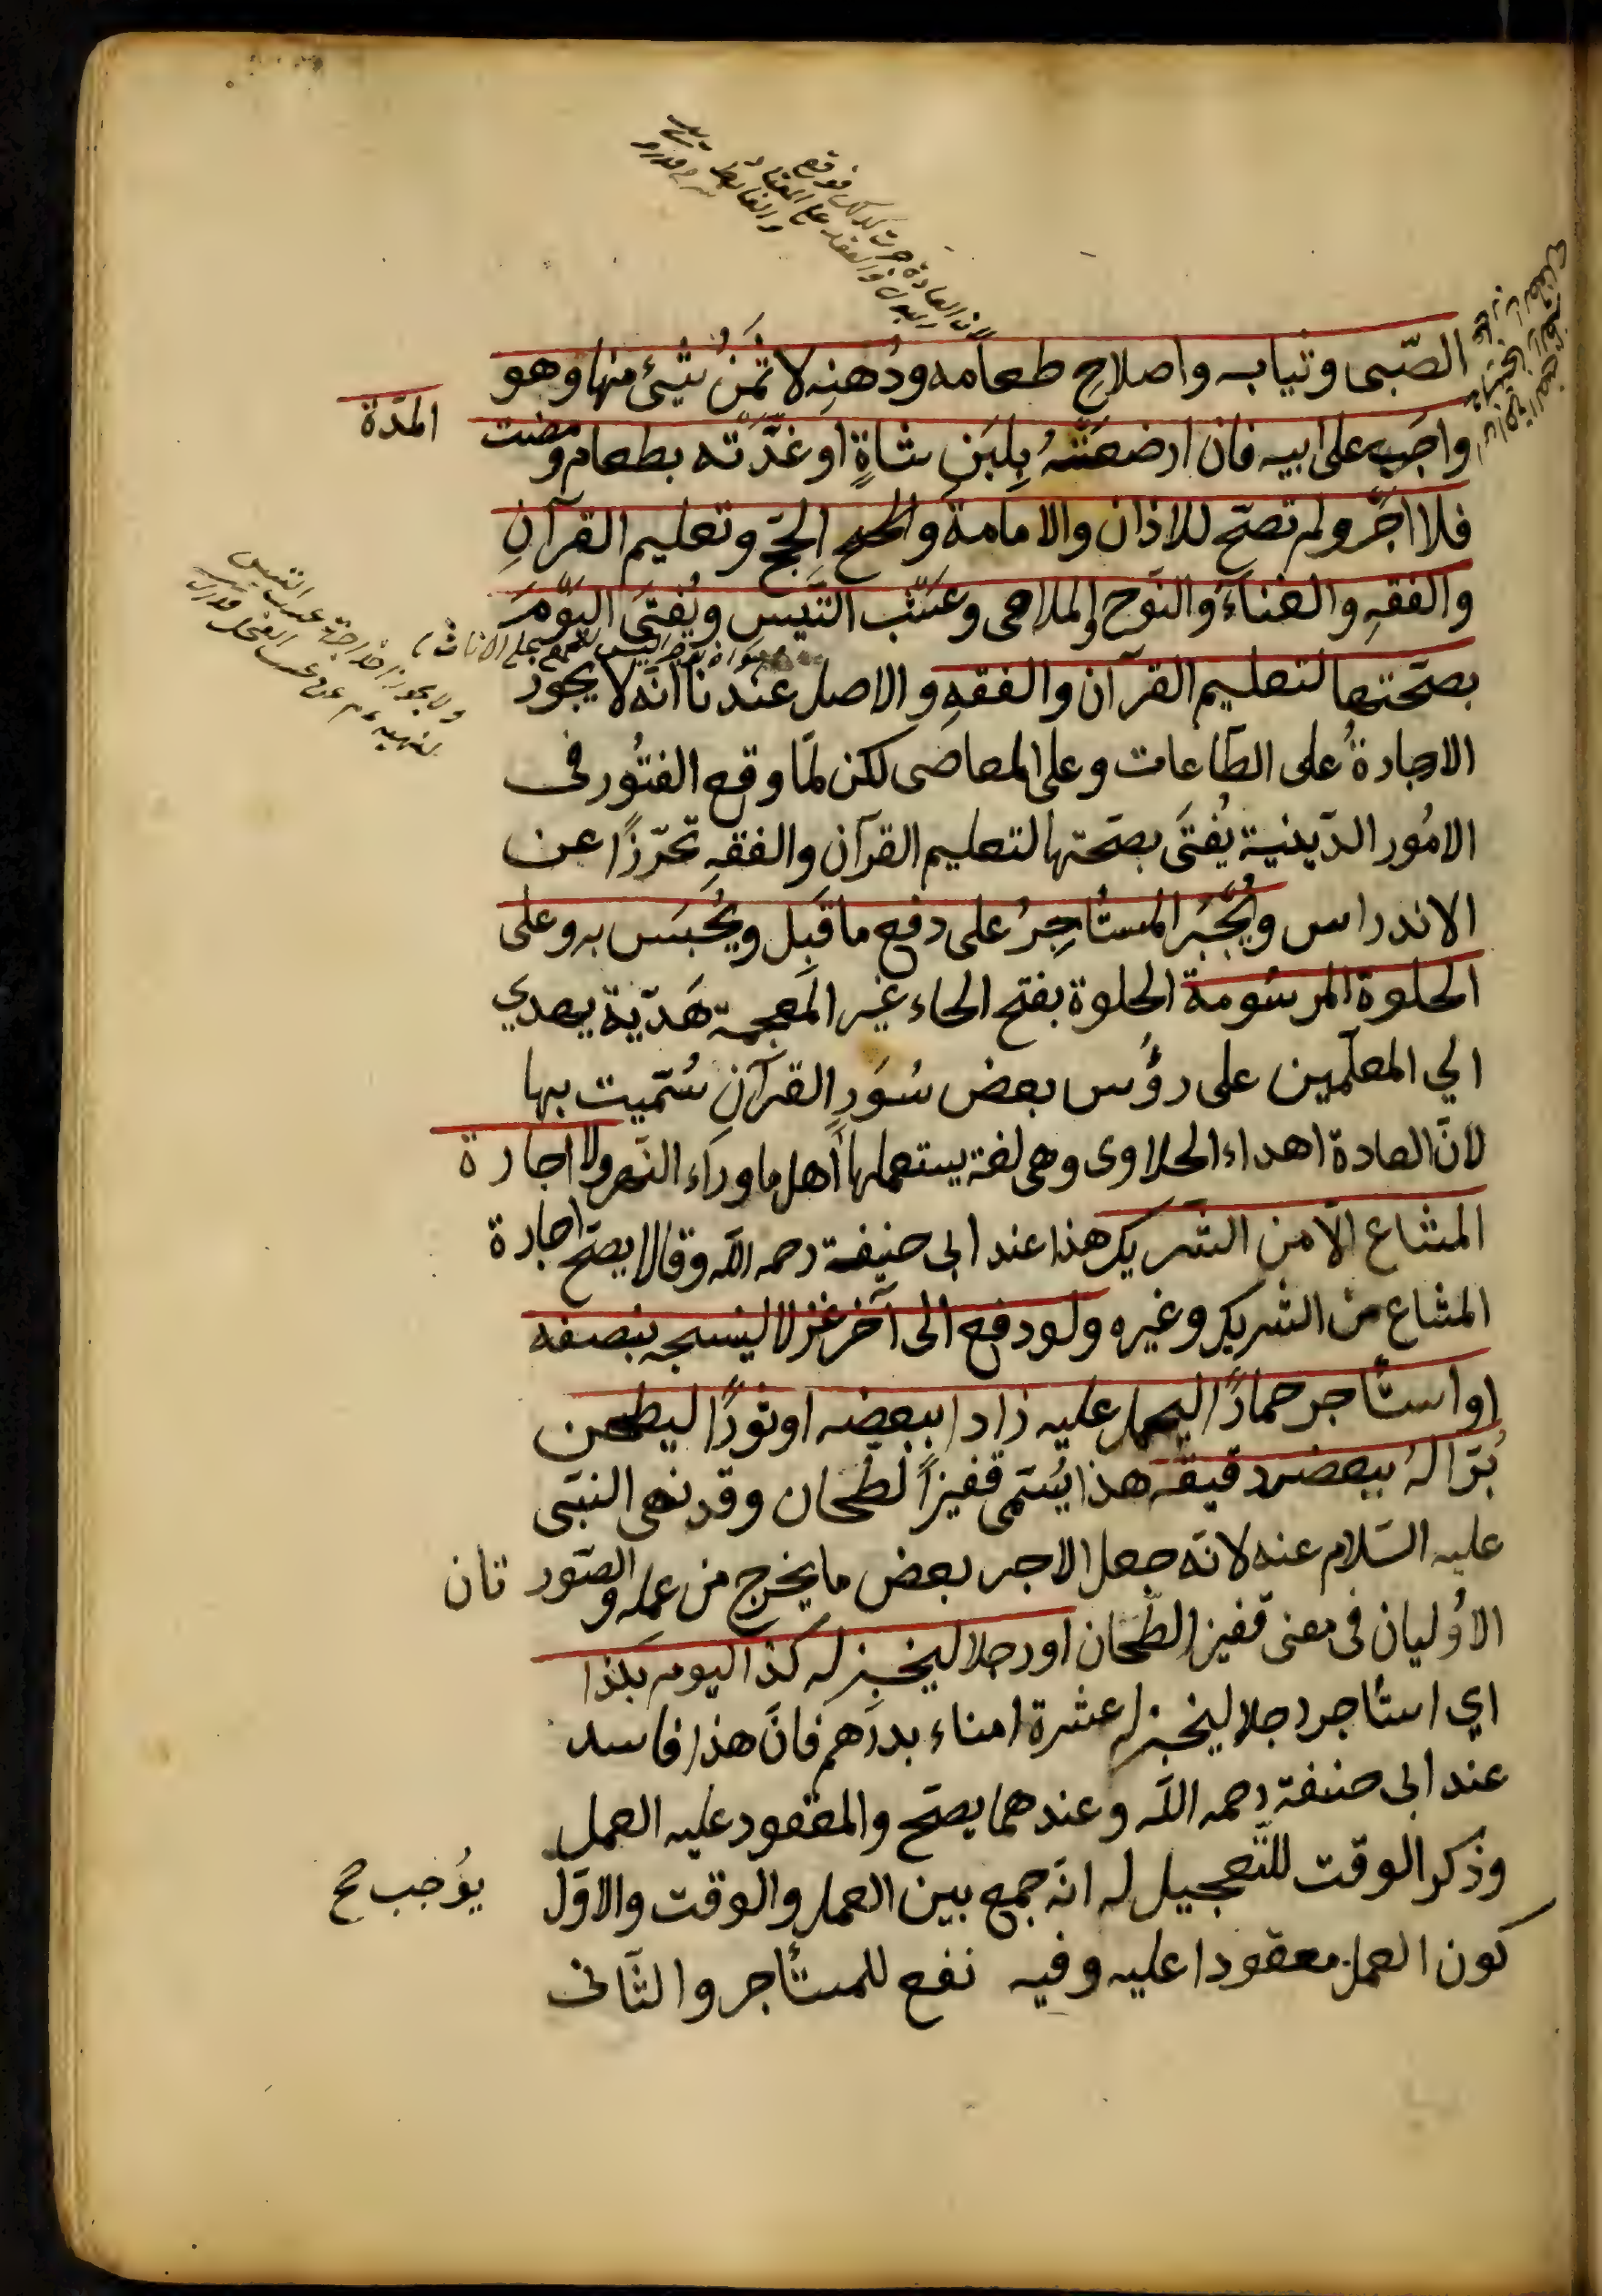 الصّبى وثيابه واصلاح طعامه ودُهنِه لا ثَمَنُ شئ منها وهو
واجب على ابيه فان ارضعَتْهُ بِلَبَنِ شاةٍ او غَدَّتْه بطعام ومضت المدّة
فلا اجرَ ولم تصحّ للاذان والامامة والحج الحجّ وتعليم القرآنِ
والفقهِ والغناءُ والنَوح والملاهى وعَسْب التَّيس ويُفتَى اليَوْمَ
بصحّتها لتعليم القرآن والفقهِ والاصل عندنا انّه لا يجوز
الاجارةُ على الطّاعات وعلى المعاصى لكن لمّا وقع الفتُور فى
الامُور الدّينية يُفتَى بصحّتها لتعليم القرآن والفقهِ تحرّزًا عن
الاندراس ويُجْبَر المستأجِرُ على دفع ما قَبِل ويُحْبَس به وعلى
الحلوة المرسُومة الحلوة بفتح الحاء غير المعجمة هَديّة يهدي
الي المعلّمين على رؤُس بعض سُوَرِ القرآنِ سُمّيت بها
لانّ العادة اهداء الحلاوى وهى لغة يستعملها أهل ما وراء النّهر ولا اجارة
المشاع الّا من الشّريك هذا عند ابى حنيفة رحمه اللّه وقالا يصحّ اجارة
المشاع من الشريك وغيره ولو دفع الى آخر غزلا لينسجه بنصفه
او استأجر حمارًا ليحمل عليه زادا ببعضه او ثورًا ليطحن
بُرّا لهُ ببعض دقيقه هذا يُسَمّى قفيزَ الطّحان وقد نهى النبّى
عليه السّلام عنه لانّه جعل الاجر بعض ما يخرج من عمله والصّورتان
الاوُليان فى معنى قفيز الطّحان او رجلا ليخبز له كذا اليوم بكذا
اي استأجر رجلا ليخبز له عشرة امناء بدرهم فانّ هذا فاسد
عند ابى حنيفة رحمه اللّه وعندهما يصحّ والمعقود عليه العمل
وذكر الوقت للتّعجيل له انّه جمع بين العمل والوقت والاوّل يؤُجب
كون العمل معقودا عليه وفيه نفع للمستأجر والثّانى
لان العادة جرت
ولا يجوز اخذ اجرة عسب التيس
لنهيه عم عن عسب الفحل